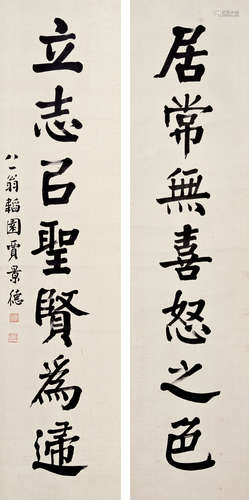 居常無喜怒之色
立志以聖賢為歸
八一翁韜園賈景德